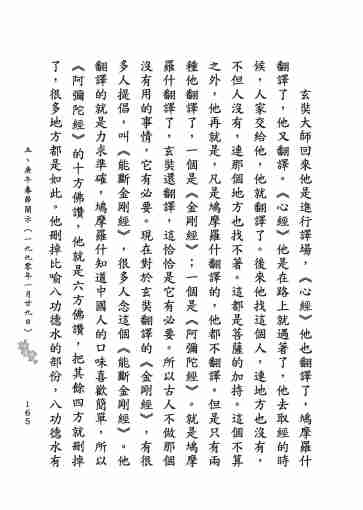 玄奘大師回來他是進行譯場，《心經》他也翻譯了，鳩摩羅什
翻譯了，他又翻譯。《心經》他是在路上就遇著了，他去取經的時
候，人家交給他，他就翻譯了。後來他找這個人，連地方也沒有，
不但人沒有，連那個地方也找不著。這都是菩薩的加持。這個不算
之外，他再就是，凡是鳩摩羅什翻譯的，他都不翻譯。但是只有兩
種他翻譯了，一個是《金剛經》；一個是《阿彌陀經》。就是鳩摩
羅什翻譯了，玄奘還翻譯，這恰恰是它有必要。所以古人不做那個
沒有用的事情，它有必要。現在對於玄奘翻譯的《金剛經》，有很
多人提倡，叫《能斷金剛經》，很多人念這個《能斷金剛經》。他
翻譯的就是力求準確，鳩摩羅什知道中國人的口味喜歡簡單，所以
《阿彌陀經》的十方佛讚，他就是六方佛讚，把其餘四方就刪掉
了，很多地方都是如此。他刪掉比喻八功德水的部份，八功德水有
五、庚午春節開示（一九九零年一月廿九日）
165